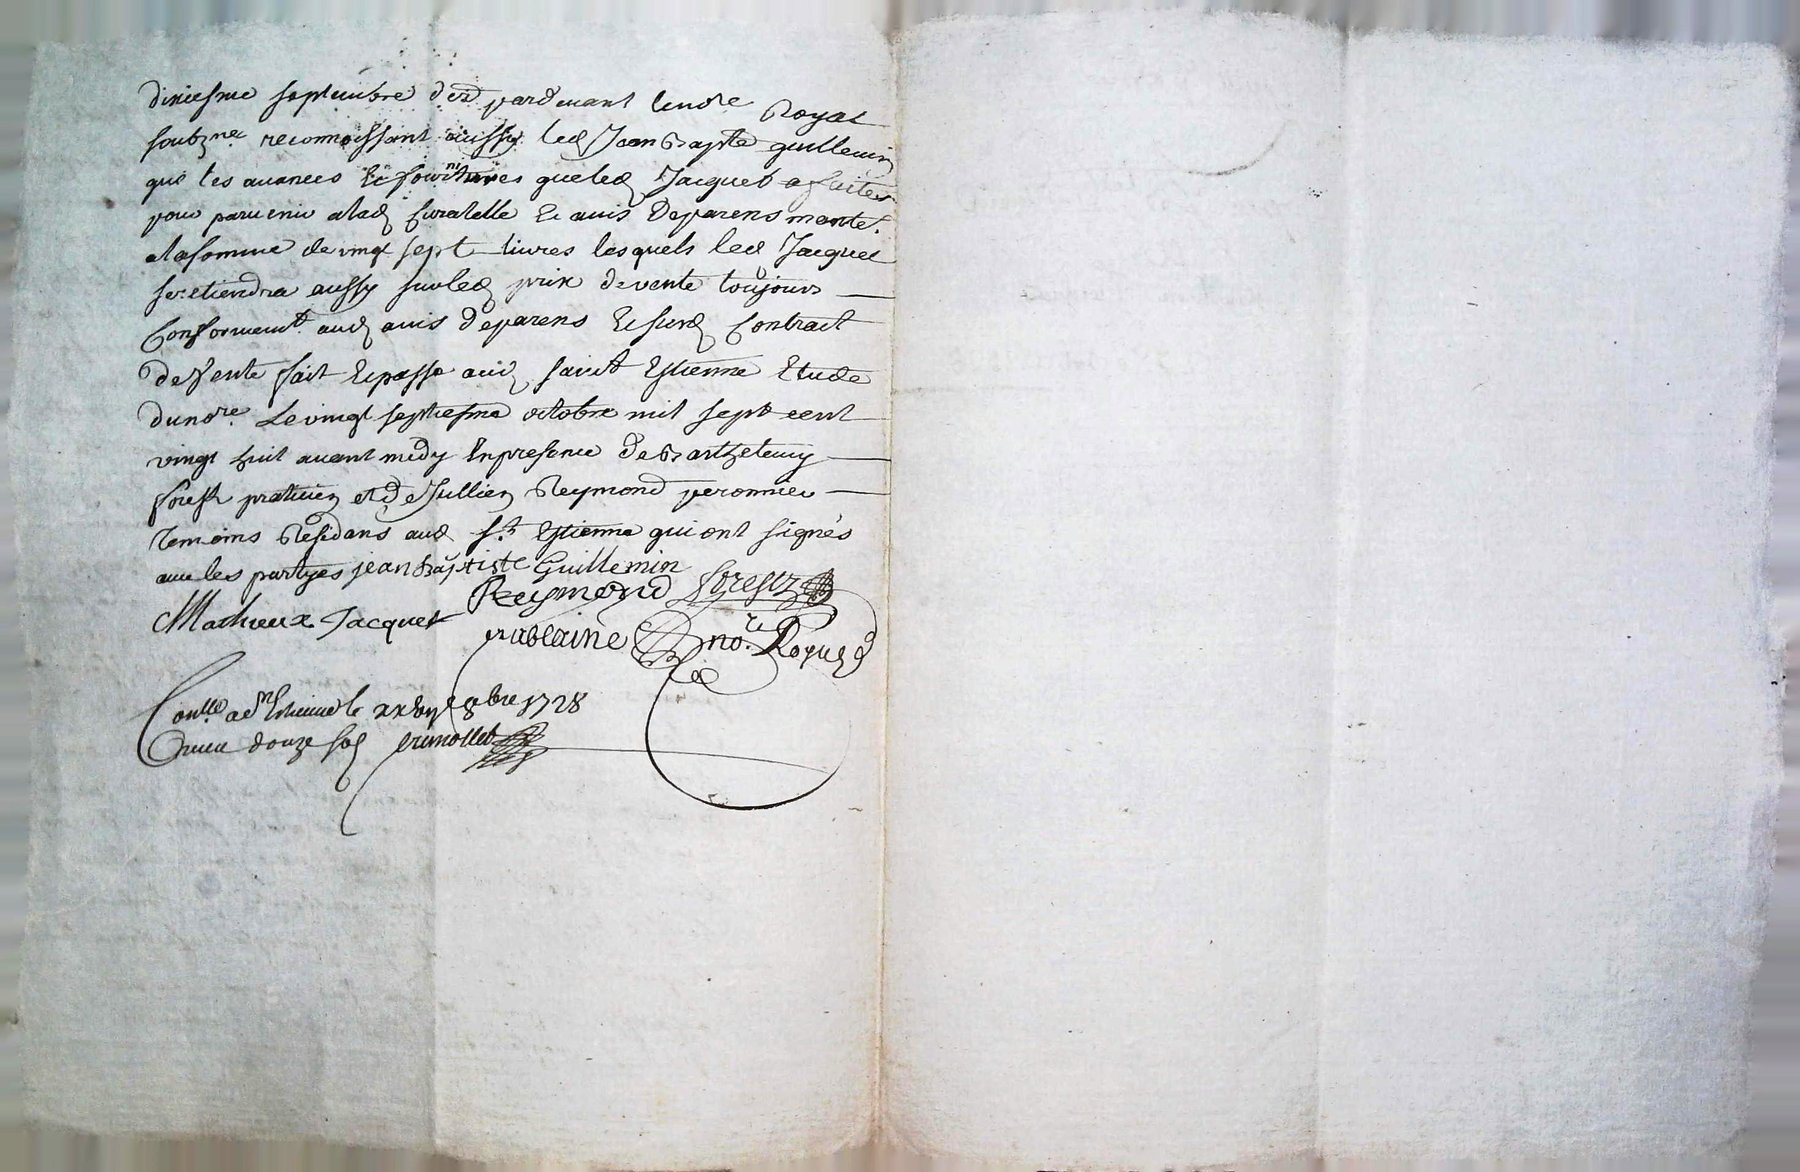 dixiesme septembre der.^d pardevant le no^re Royal
soubz^ne reconnoissant aussy led Jean Bap^te guillemin
que les avances Et fournitures que led Jacquet a faites
pour parvenir a lad Curatelle Et avis de parens monte.^t
a la somme de vingt sept livres lesquels led Jacquet
se retiendra aussy sur led prix de vente toujours
Conformem^t. aud avis de parens Et sund Contract
de Vente fait Et passé aud saint Estienne Etude
du no^re. Le vingt septiesme octobre mil sept cent
vingt huit avant midy En presence de Barthelemy
forest praticien et de Jullien Reymond
temoins Residans aud S.^t Estienne qui ont signés
avec les partyes jean Baptiste Guillemin
Reymond Forest
Mathieux Jacquet
no.^re Royal
Con^lle a S^t Estienne le xxvij 8bre 1728
Receu douze sols